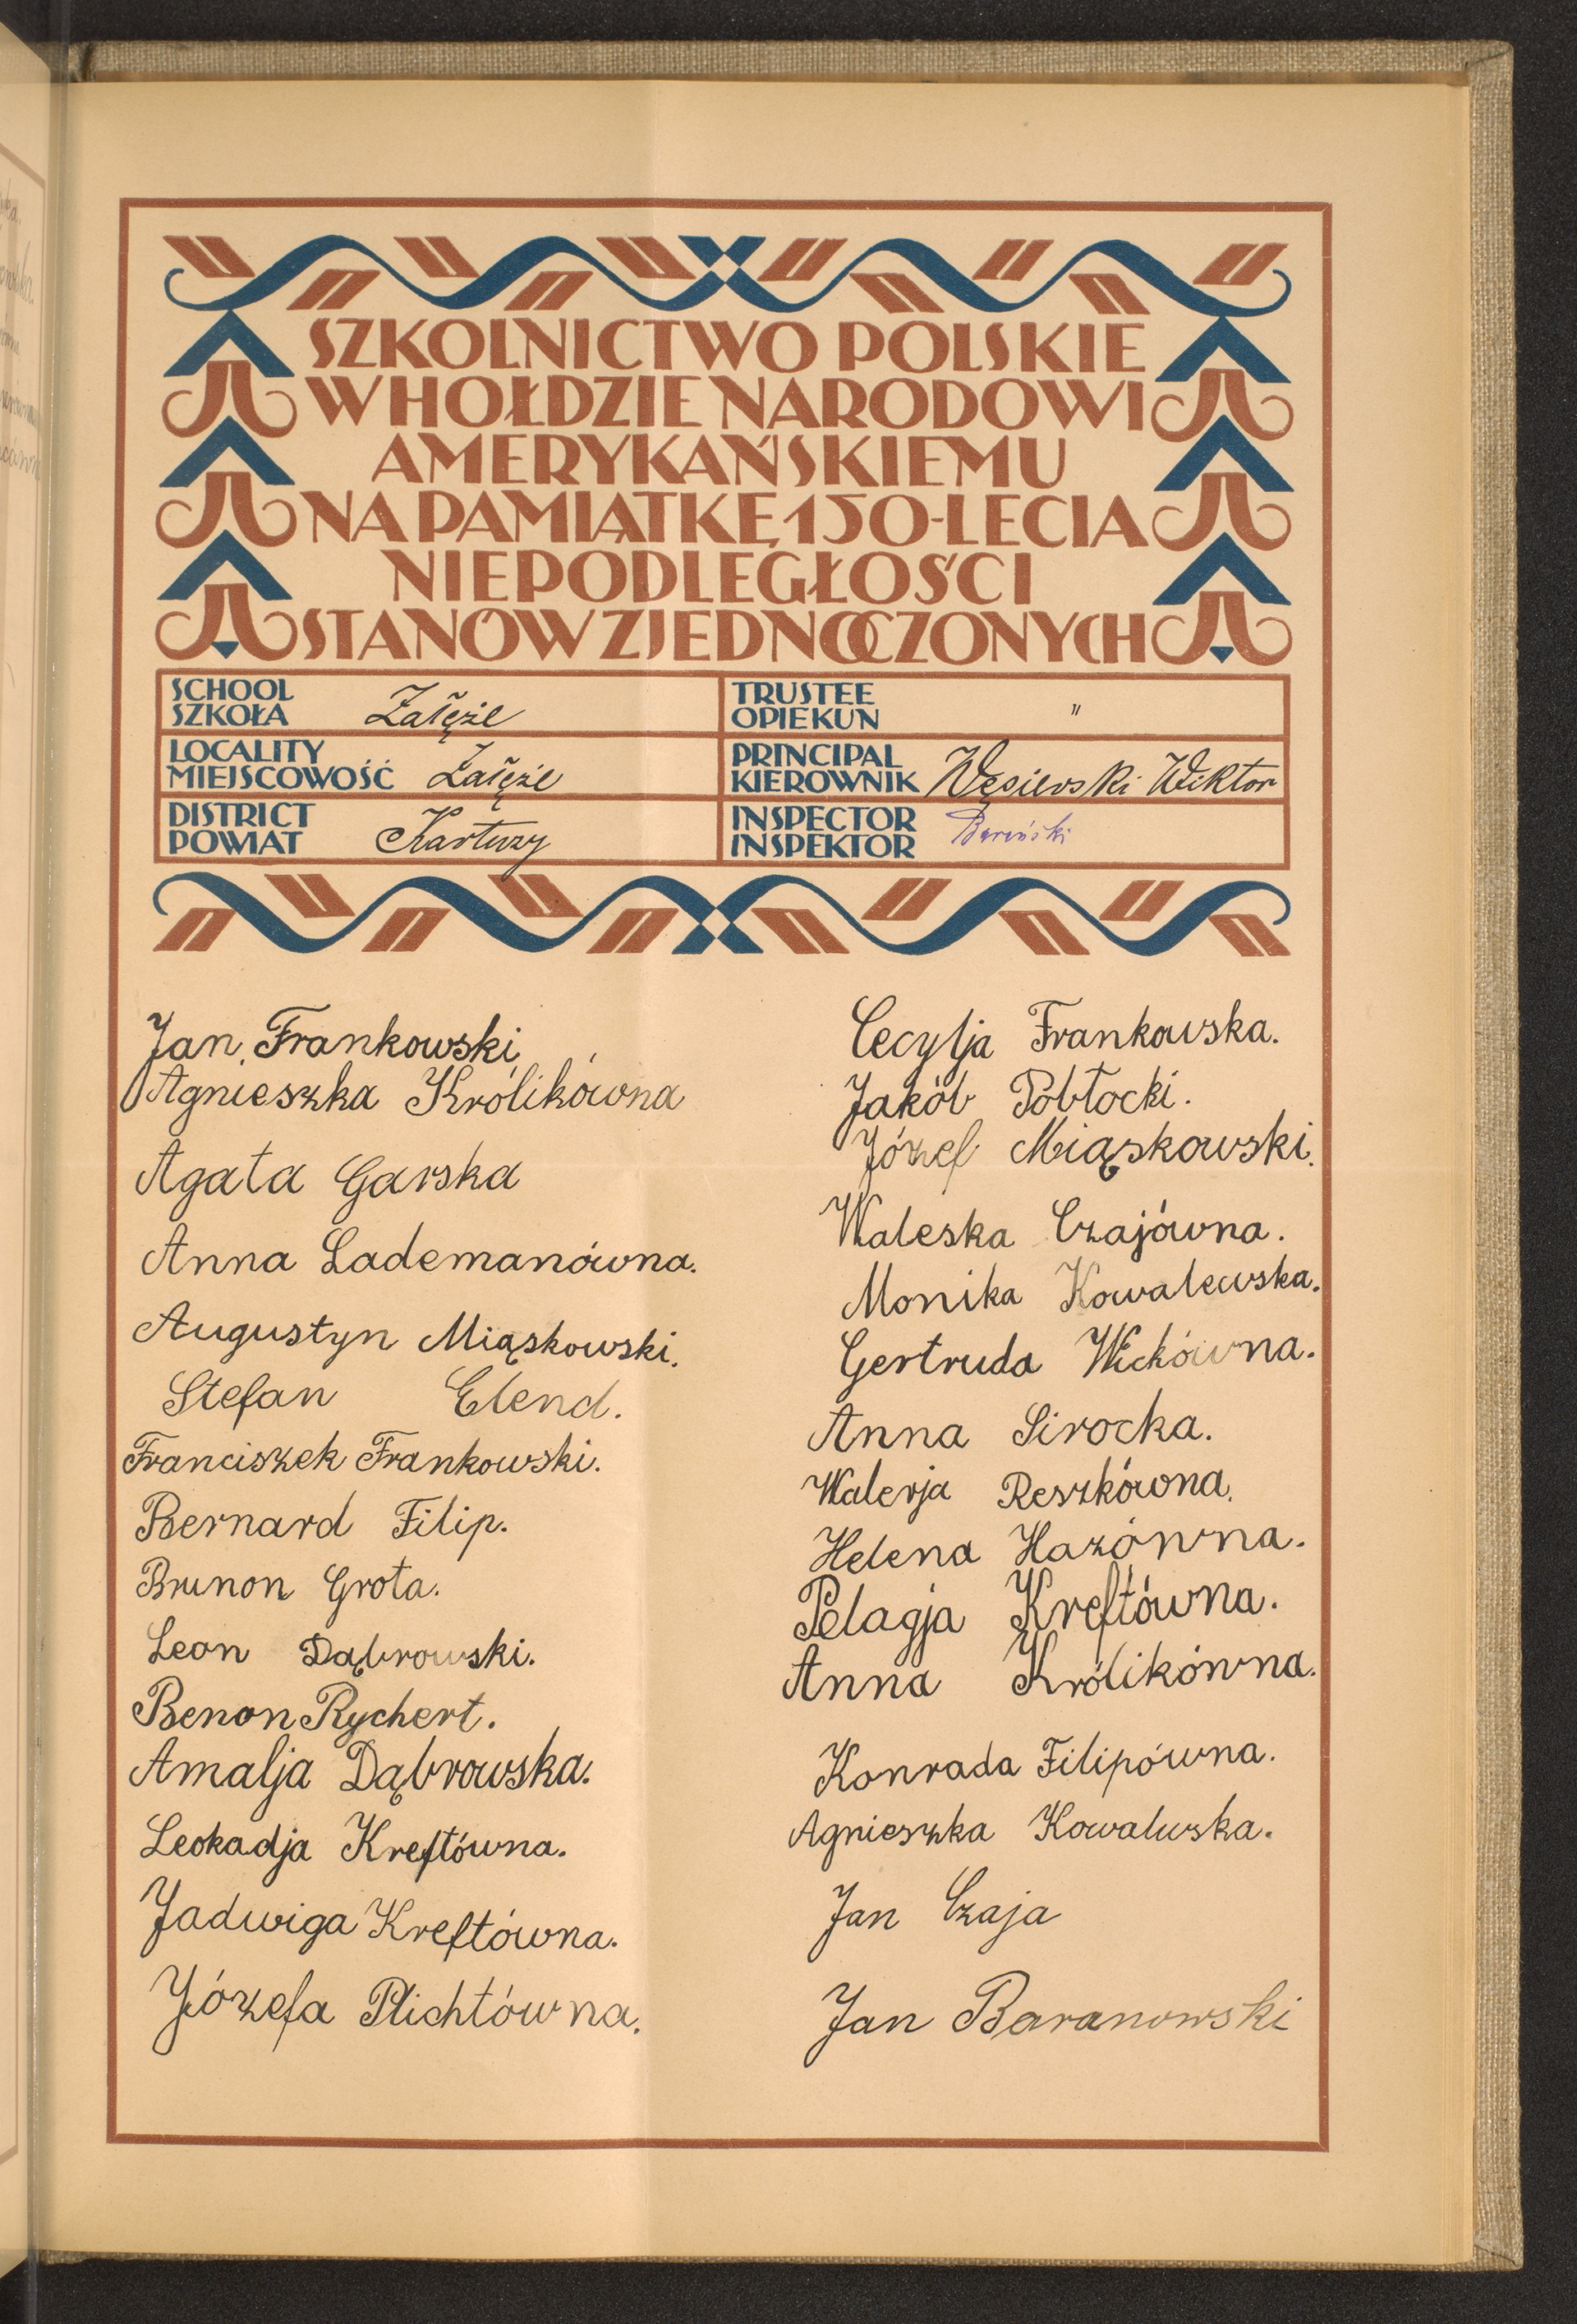 SZKOLNICTWO POLSKIE
W HOŁDZIE NARODOWI
AMERYKAŃSKIEMU
NA PAMIĄTKĘ 150-LECIA
NIEPODLEGŁOŚCI
STANÓW ZJEDNOCZONYCH
SCHOOL
SZKOŁA Załęże
TRUSTEE
OPIEKUN "
LOCALITY
MIEJSCOWOŚĆ Załęże
PRINCIPAL
KIEROWNIK Węsierski Wiktor
DISTRICT
POWIAT Kartuzy
INSPECTOR
INSPEKTOR
Jan Frankowski
Agnieszka Królikówna
Agata Garska
Anna Lademanówna.
Augustyn Miąskowski.
Stefan Elend.
Franciszek Frankowski.
Bernard Filip.
Brunon Grota.
Leon Dąbrowski.
Benon Rychert.
Amalja Dąbrowska.
Leokadja Kreftówna.
Jadwiga Kreftówna.
Józefa Plichtówna.
Cecylja Frankowska.
Jakób Pobłocki.
Józef Miąskowski.
Waleska Czajówna.
Monika Kowalewska.
Gertruda Wickówna.
Anna Sirocka.
Walerja Reszkówna.
Helena Hazówna.
Pelagja Kreftówna.
Anna Królikówna.
Konrada Filipówna.
Agnieszka Kowalewska.
Jan Czaja
Jan Baranowski